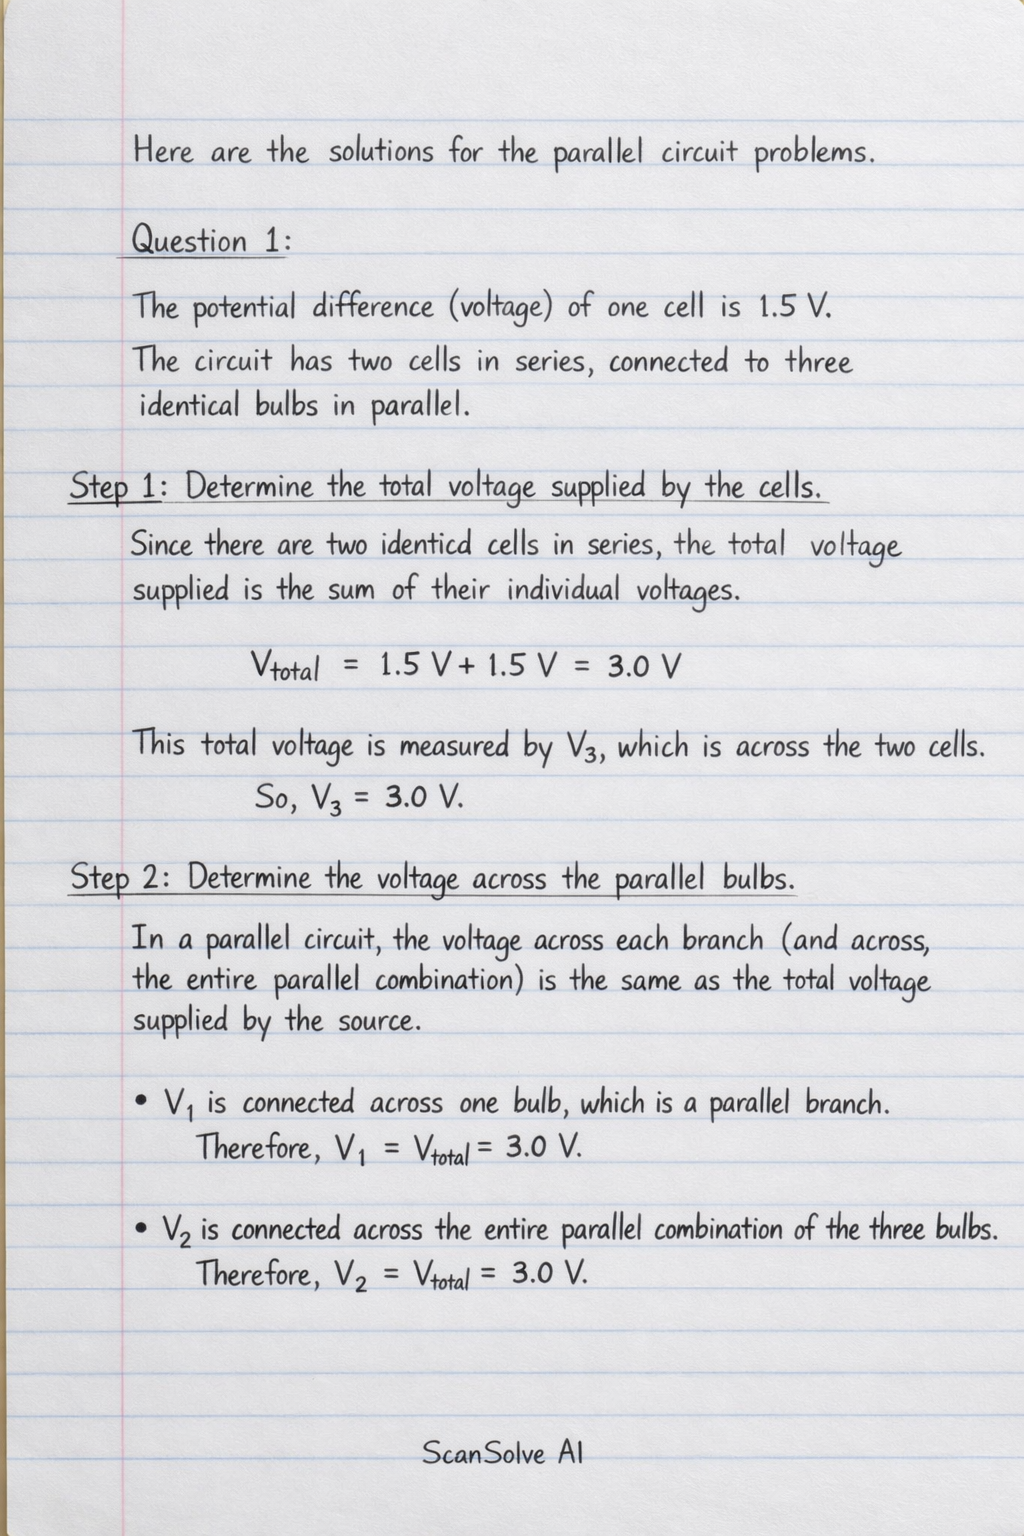 Here are the solutions for the parallel circuit problems.
Question 1:
The potential difference (voltage) of one cell is 1.5 V.
The circuit has two cells in series, connected to three
identical bulbs in parallel.
Step 1: Determine the total voltage supplied by the cells.
Since there are two identicd cells in series, the total voltage
supplied is the sum of their individual voltages.
V_total = 1.5 V + 1.5 V = 3.0 V
This total voltage is measured by V₃, which is across the two cells.
So, V₃ = 3.0 V.
Step 2: Determine the voltage across the parallel bulbs.
In a parallel circuit, the voltage across each branch (and across,
the entire parallel combination) is the same as the total voltage
supplied by the source.
• V₁ is connected across one bulb, which is a parallel branch.
Therefore, V₁ = V_total = 3.0 V.
• V₂ is connected across the entire parallel combination of the three bulbs.
Therefore, V₂ = V_total = 3.0 V.
ScanSolve AI